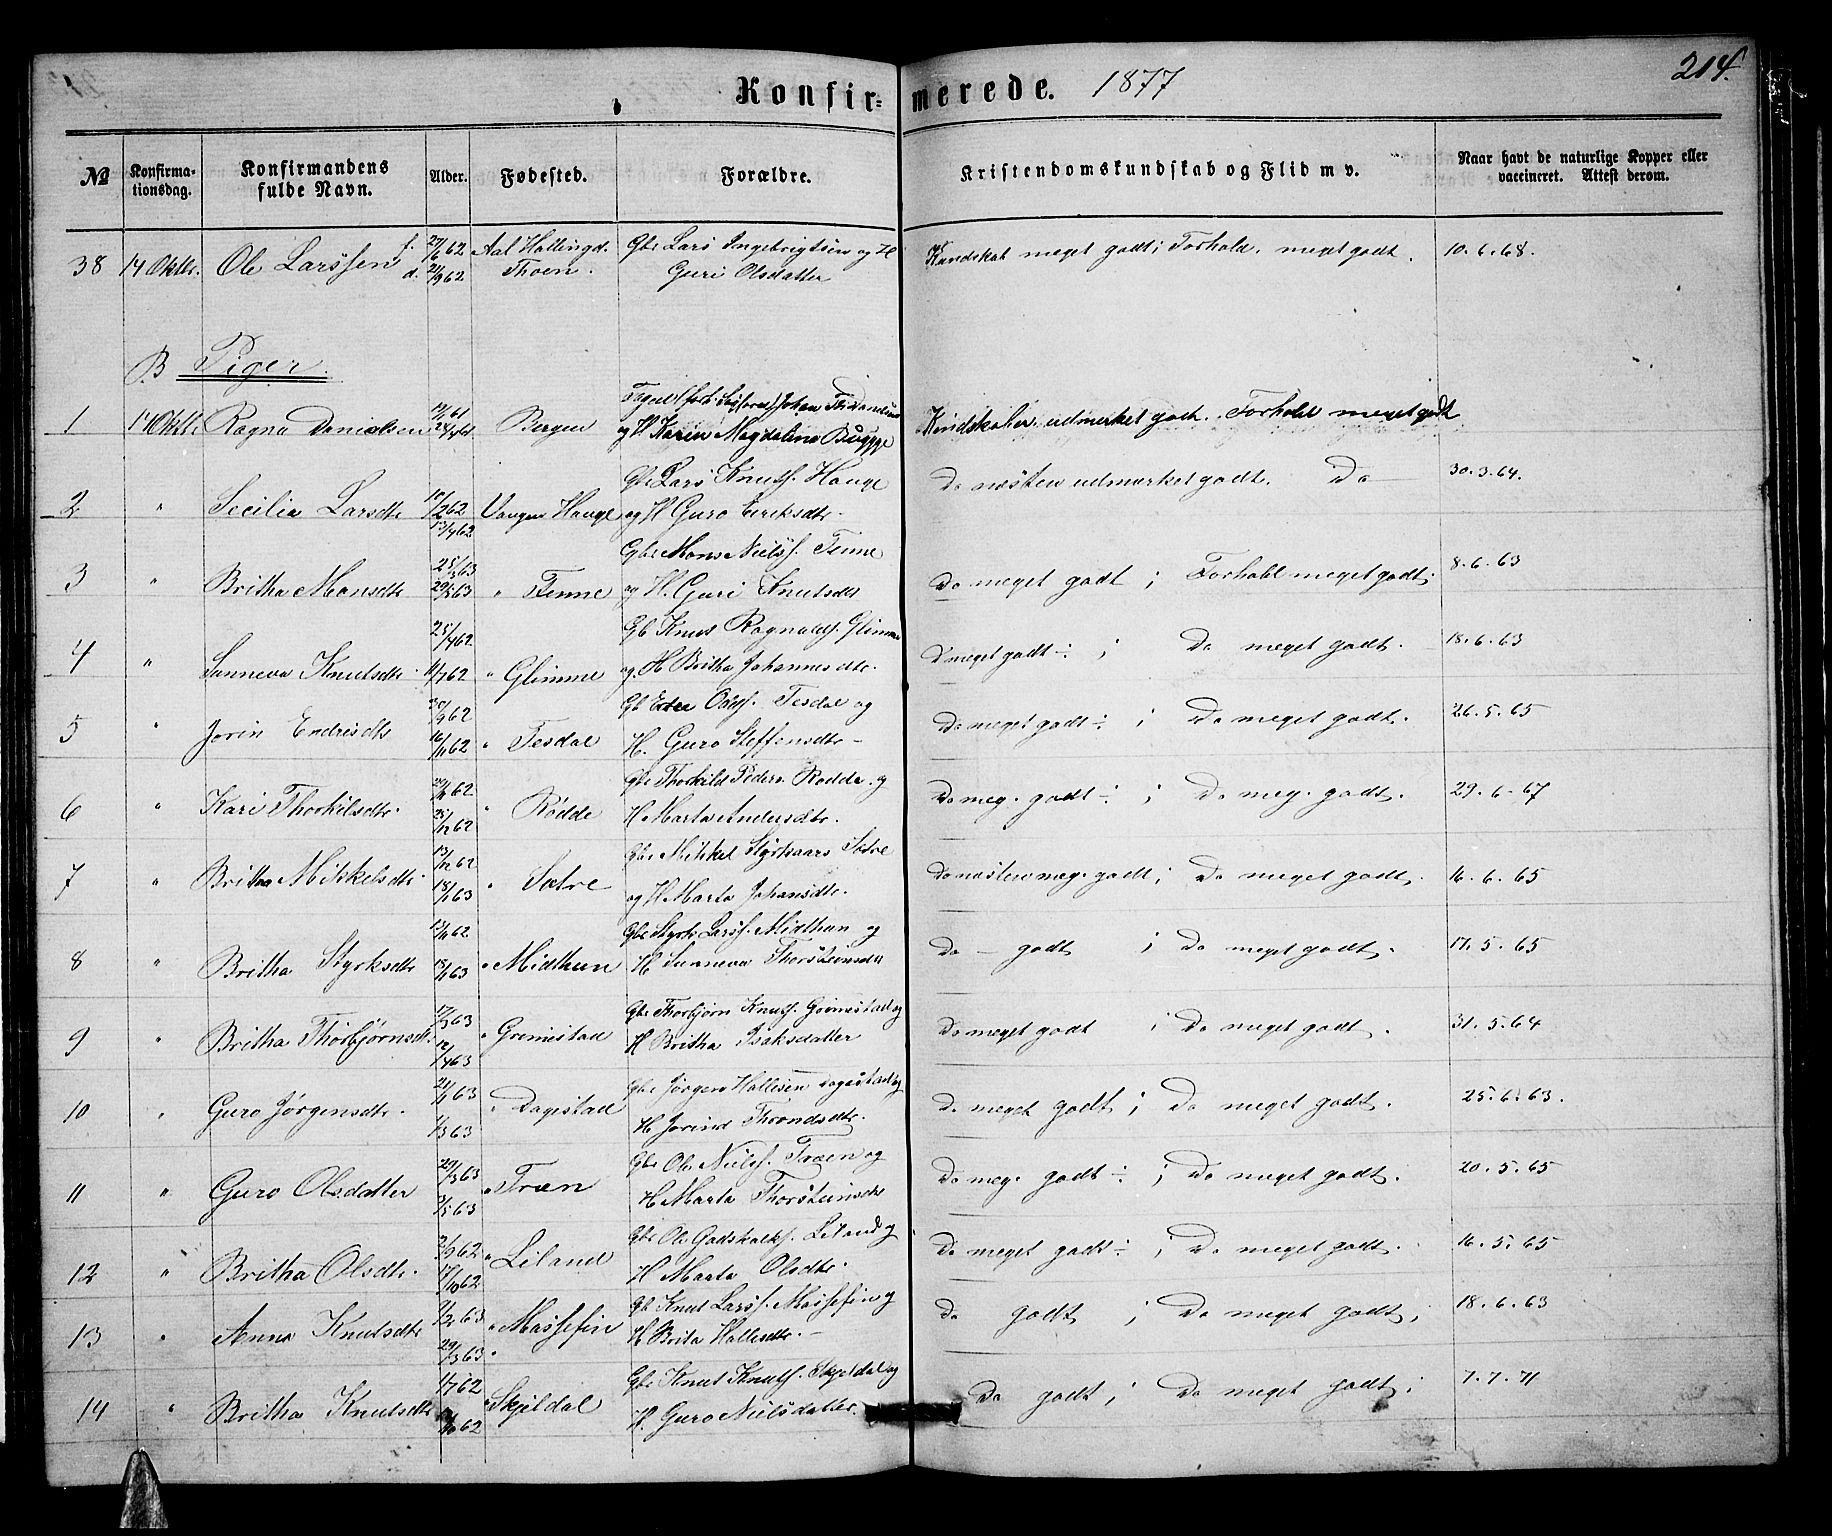 Konfirmerede. 1877
214.
№
Konfirmationsdag.
Konfirmandens fulde Navn.
Alder.
Fødested.
Forældre.
Kristendomskundskab og Flid m v.
Naar havt de naturlige Kopper eller vaccineret. Attest derom.
38 14 Oktbr. Ole Larssen f. 27/6 62 d. 21/9 62 Aal Hallingd. Thoen. Gbr Lars Ingebrigtsen og H Guri Olsdatter Kundskab meget godt; Forhold. meget godt. 10.6.68.
B Piger.
1 14 Oktbr. Ragna Danielsen Bergen og H. Karin Magdalena Bugge Kundskaber udmerket godt. Forhold meget godt
2 " Secilia Larsdtr 10/2 62 13/4 62 Vangen Hauge Gbr Lars Knuts. Hauge og H Guro Eriksdtr. Do næsten udmærket godt. Do 30.3.64.
3 " Britha Monsdtr 25/3 63 29/5 63 " Tenne Gbr Mons Nielss. Tenne og H. Guri Knutsdtr Do meget godt ; Forhold meget godt. 8.6.63
4 " Sunneva Knutsdtr. 25/4 62 11/7 62 " Glimme Gb Knut Ragnalds. Glimme og H Britha Johannesdtr. Do meget godt ÷ ; Do meget godt. 18.6.63
5 " Jorin Endrisdtr 30/9 62 16/11 62 " Tesdal Gb Olss. Tesdal og H. Guro Steffensdtr – Do meget godt ÷ ; Do meget godt. 26.5.65
6 " Kari Thorkilsdtr. 20/11 62 25/12 62 " Rødde Gbr Thorkild Peders. Rødde og H Marta Andersdtr. Do meg. godt ÷ ; Do meg. godt. 29.6-67
7 " Britha Mikkelsdtr 13/12 62 18/1 63 " Sætre Gbr Mikkel Styrkaars Sætre og H Marta Johansdtr. Do næsten meg. godt ; Do meget godt. 16.6.65
8 " Britha Styrksdtr 13/11 62 18/1 63 " Midthun Gbr Styrk Larss. Midthun og H Sunneva Thorsteinsdtr Do – godt ; Do meget godt. 17.5.65
9 " Britha Thorbjørnsdtr. 17/3 63 12/4 63 " Grimestad Gbr Thorbjørn Knuts. Grimestad og H Britha Isaksdatter Do meget godt ; Do meget godt. 31.5.64
10 " Guro Jørgensdtr. 21/1 63 1/3 63 " Dagestad Gbr Jørgen Hallesen Dagestad og H Jorind Throndsdtr. Do meget godt ; Do meget godt. 25.6.63.
11 " Guro Olsdatter 29/3 63 3/5 63 " Træn Gbr Ole Nielss. Træen og H Marta Thorsteinsdtr Do meg. godt ÷ ; Do meget godt. 20.5.65
12 " Britha Olsdtr. 2/9 62 17/10 62 " Leiland Gbr Ole Godskalks. Leiland og H Marta Olsdtr. Do meget godt ÷ ; Do meget godt. 16.5.65
13 " Anna Knutsdtr 1/2 63 29/3 63 " Massefin Gbr Knut Larss. Massefin og H Brita Hallesdtr. – Do godt ; Do meget godt ; 18.6.63
14 " Britha Knutsdtr 1/7 62 " Skjeldal Gbr Knut Knuts. Skjeldal og H. Guro Nielsdatter. Do godt ; Do meget godt ; 7.7.71